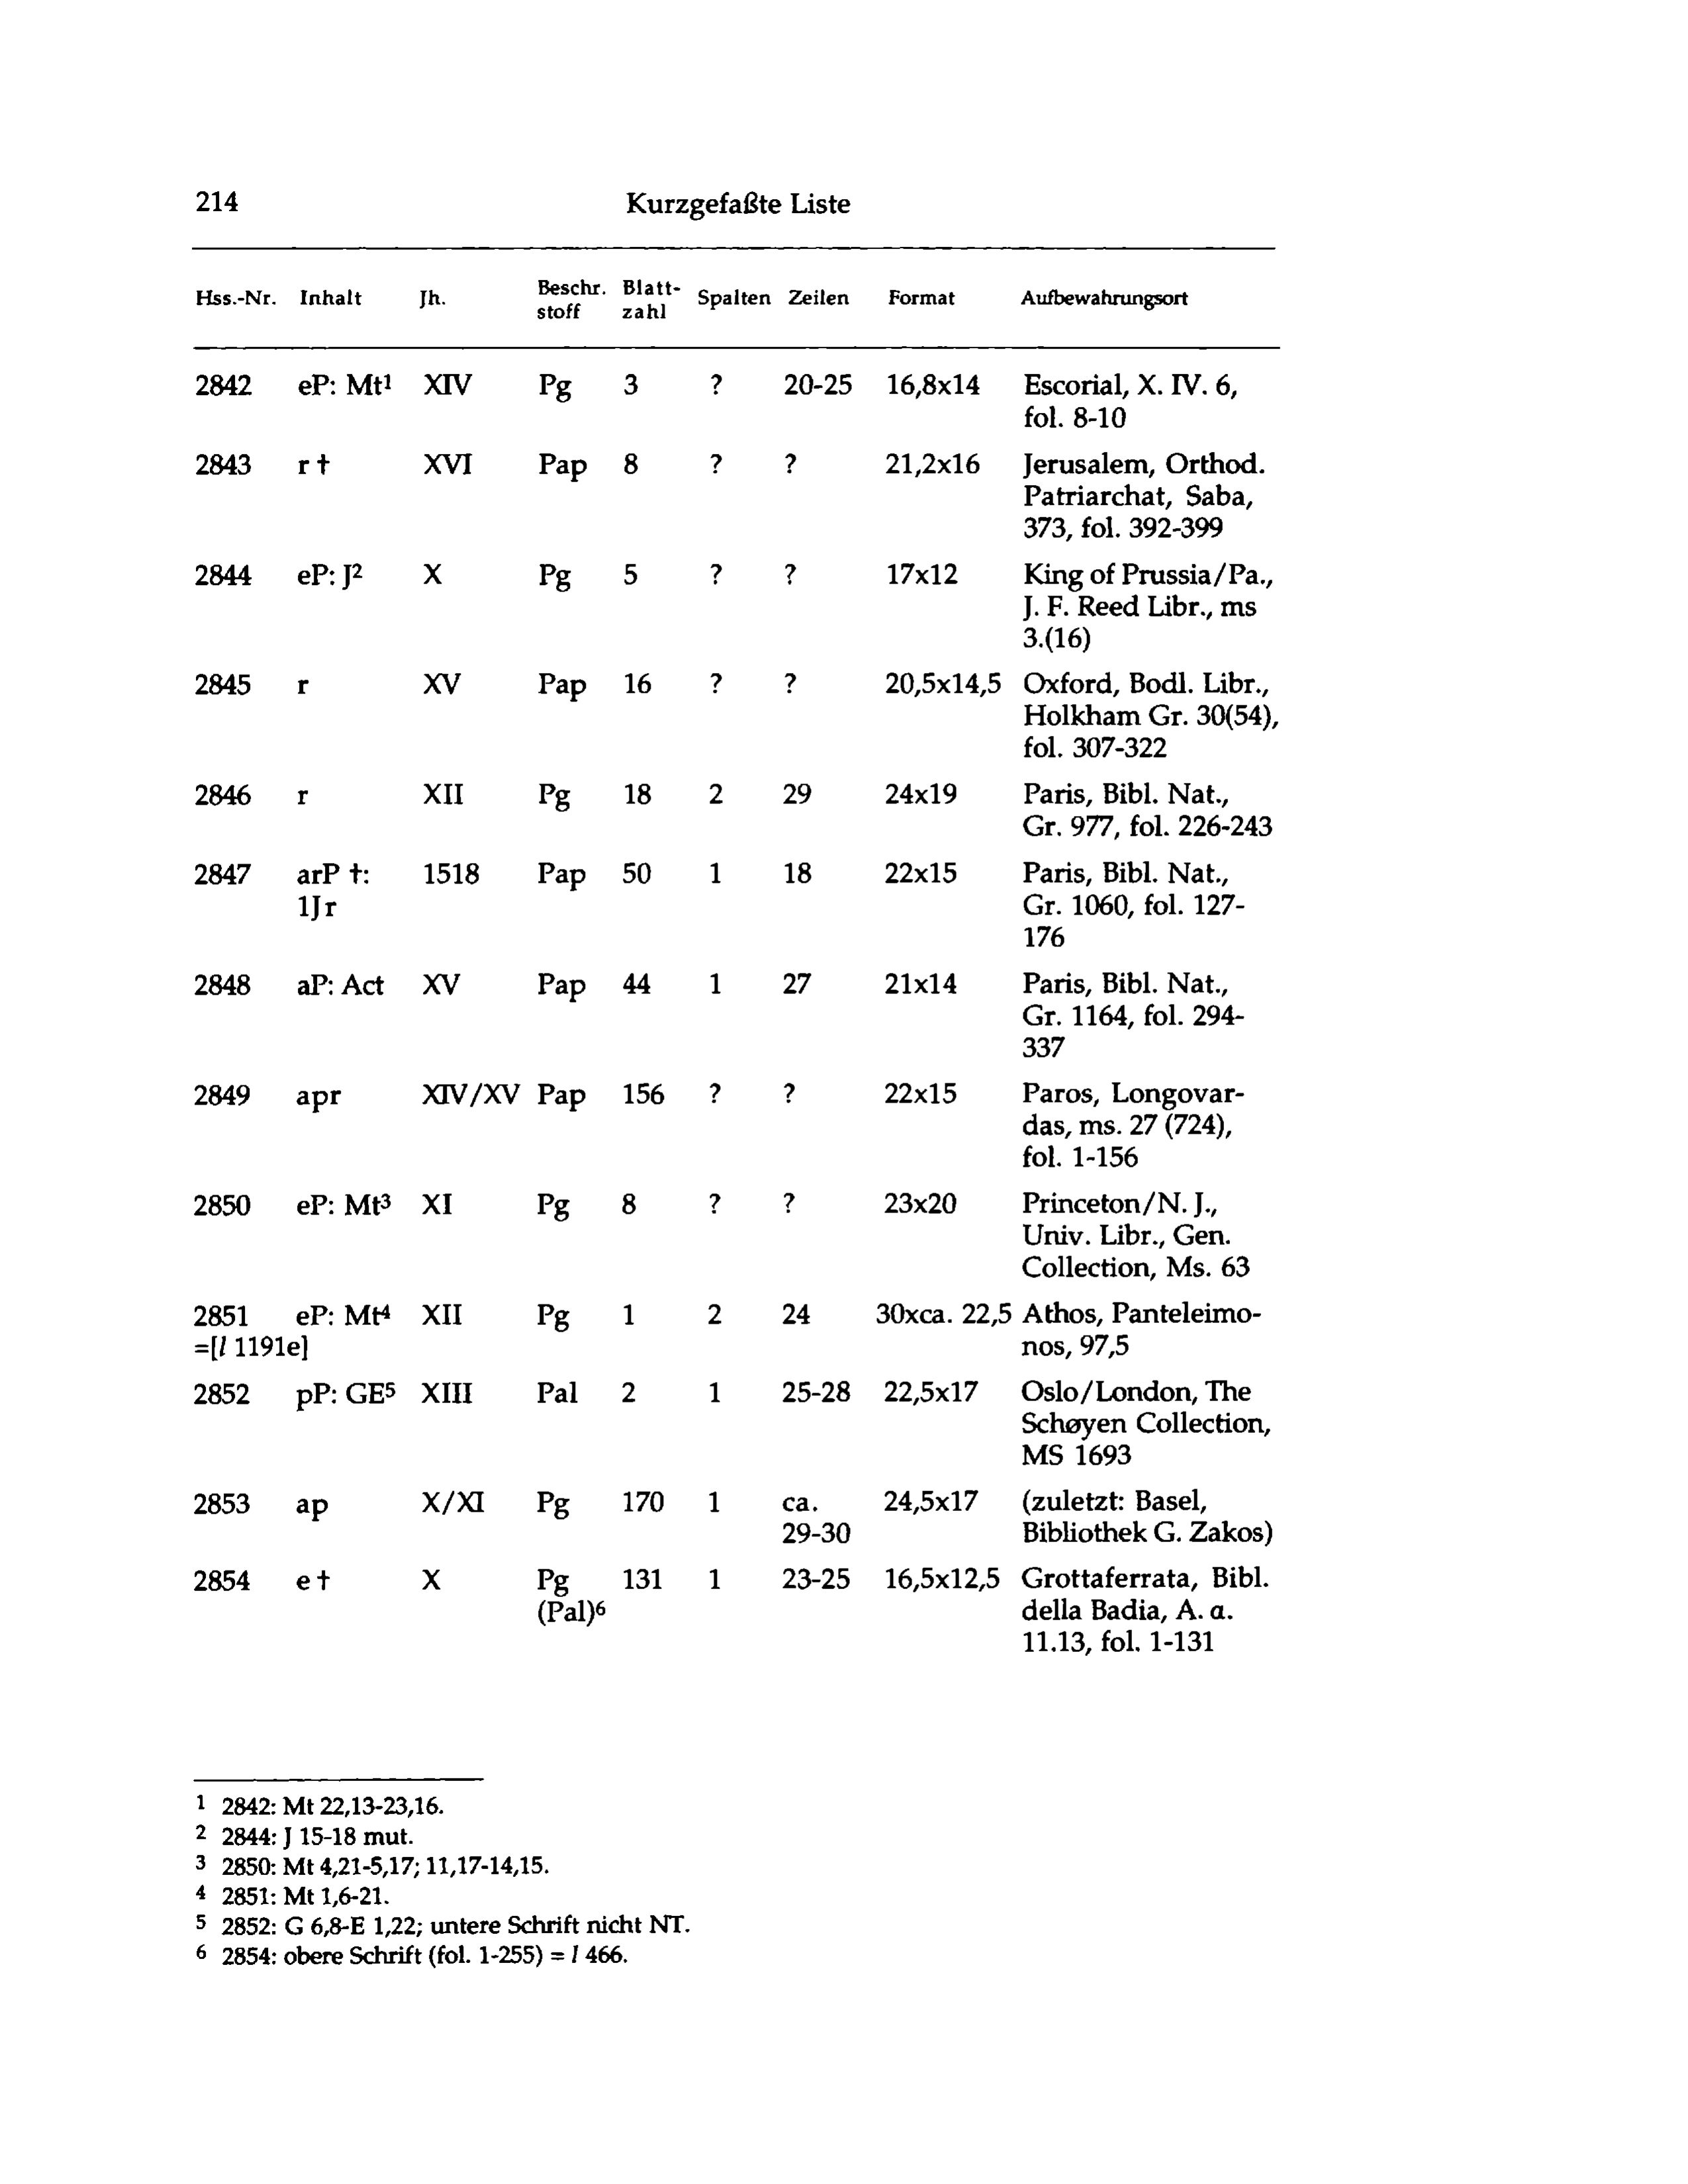 214 Kurzgefaßte Liste
Hss.-Nr. Inhalt Jh. Beschr. stoff Blatt- zahl Spalten Zeilen Format Aufbewahrungsort
2842 eP: Mt¹ XIV Pg 3 ? 20-25 16,8x14 Escorial, X. IV. 6,
fol. 8-10
2843 r † XVI Pap 8 ? ? 21,2x16 Jerusalem, Orthod.
Patriarchat, Saba,
373, fol. 392-399
2844 eP: J² X Pg 5 ? ? 17x12 King of Prussia/Pa.,
J. F. Reed Libr., ms
3.(16)
2845 r XV Pap 16 ? ? 20,5x14,5 Oxford, Bodl. Libr.,
Holkham Gr. 30(54),
fol. 307-322
2846 r XII Pg 18 2 29 24x19 Paris, Bibl. Nat.,
Gr. 977, fol. 226-243
2847 arP †: 1518 Pap 50 1 18 22x15 Paris, Bibl. Nat.,
1Jr Gr. 1060, fol. 127-
176
2848 aP: Act XV Pap 44 1 27 21x14 Paris, Bibl. Nat.,
Gr. 1164, fol. 294-
337
2849 apr XIV/XV Pap 156 ? ? 22x15 Paros, Longovar-
das, ms. 27 (724),
fol. 1-156
2850 eP: Mt³ XI Pg 8 ? ? 23x20 Princeton/N. J.,
Univ. Libr., Gen.
Collection, Ms. 63
2851 eP: Mt⁴ XII Pg 1 2 24 30xca. 22,5 Athos, Panteleimo-
=[l 1191e] nos, 97,5
2852 pP: GE⁵ XIII Pal 2 1 25-28 22,5x17 Oslo/London, The
Schøyen Collection,
MS 1693
2853 ap X/XI Pg 170 1 ca. 24,5x17 (zuletzt: Basel,
29-30 Bibliothek G. Zakos)
2854 e † X Pg 131 1 23-25 16,5x12,5 Grottaferrata, Bibl.
(Pal)⁶ della Badia, A. α.
11.13, fol. 1-131
¹ 2842: Mt 22,13-23,16.
² 2844: J 15-18 mut.
³ 2850: Mt 4,21-5,17; 11,17-14,15.
⁴ 2851: Mt 1,6-21.
⁵ 2852: G 6,8-E 1,22; untere Schrift nicht NT.
⁶ 2854: obere Schrift (fol. 1-255) = l 466.